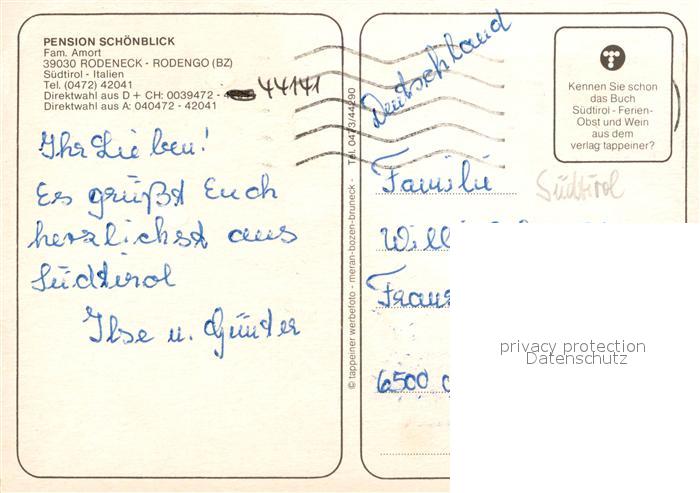 PENSION SCHÖNBLICK
Fam. Amort
39030 RODENECK - RODENGO (BZ)
Südtirol - Italien
Tel. (0472) 42041
Direktwahl aus D + CH: 0039472 - 44141
Direktwahl aus A: 040472 - 42041
Ihr Lieben!
Es grüßt Euch
herzlichst aus
Südtirol
Ilse u. Günter
© tappeiner werbefoto - meran-bozen-bruneck - Tel. 0473/44290
Deutschland
Kennen Sie schon
das Buch
Südtirol - Ferien-
Obst und Wein
aus dem
verlag tappeiner?
Familie
Südtirol
Willi
6500
privacy protection
Datenschutz